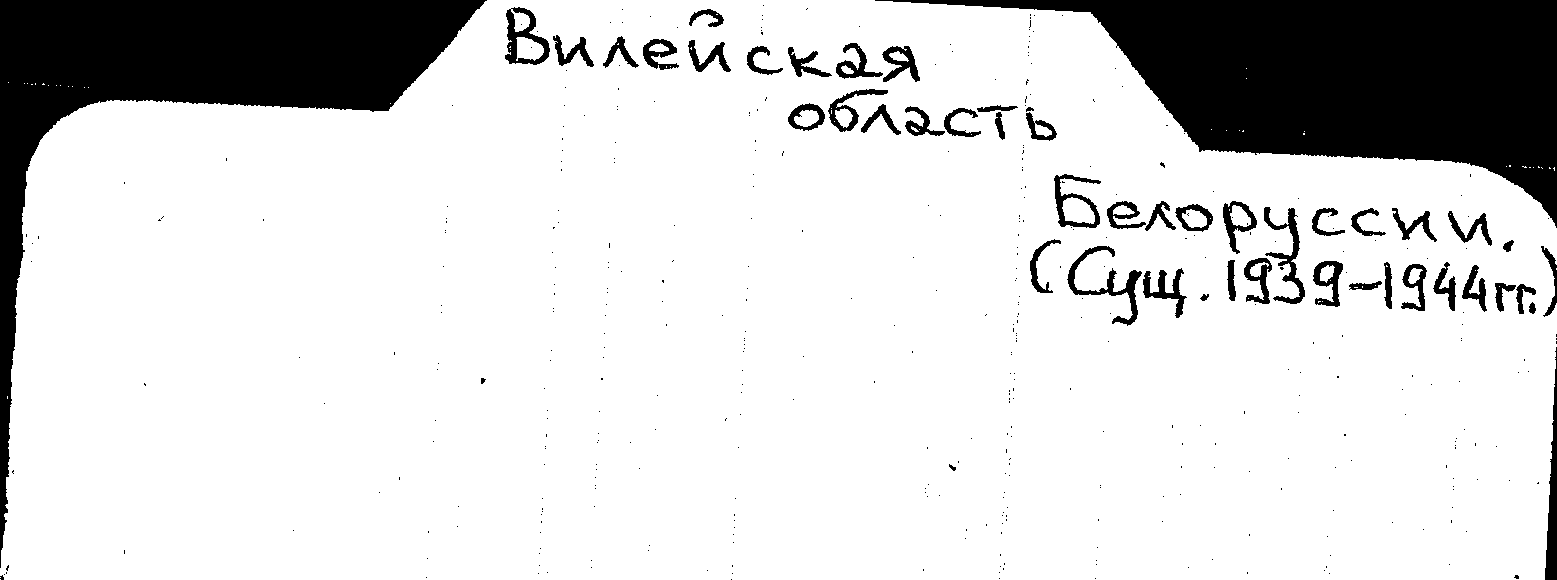 Вилейская
область
Белоруссии.
(Сущ. 1939-1944гг.)